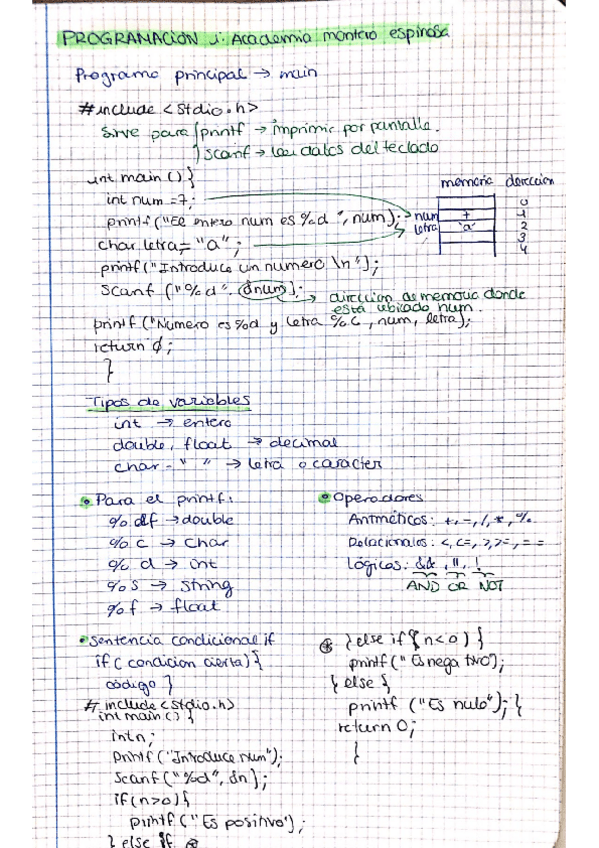 PROGRAMACIÓN I: Academia montero espinosa
Programa principal → main
#include <stdio.h>
Sirve para printf → imprimir por pantalla.
scanf → leer datos del teclado
int main () {
int num = 7;
printf("El entero num es %d ", num);
char letra = "a";
printf("Introduce un numero \n");
scanf ("%d", &num);
→ direccion de memoria donde
está ubicado num.
printf ("Numero es %d y letra %c", num, letra);
return 0;
}
memoria direccion
0
num 7 1
letra 'a' 2
3
4
Tipos de variables
int → entero
double, float → decimal
char - " " → letra o caracter
Para el printf:
%df → double
%c → char
%d → int
%s → string
%f → float
Operadores
Aritméticos: +, -, /, *, %
Relacionales: <, <=, >, >=, ==
Lógicos: &&, ||, !
AND OR NOT
Sentencia condicional if
if (condicion cierta) {
código }
#include <stdio.h>
int main () {
int n;
printf ("Introduce num");
scanf ("%d", &n);
if (n>0) {
printf ("Es positivo");
} else if
} else if (n<0) {
printf ("Es negativo");
} else {
printf ("Es nulo"); }
return 0;
}